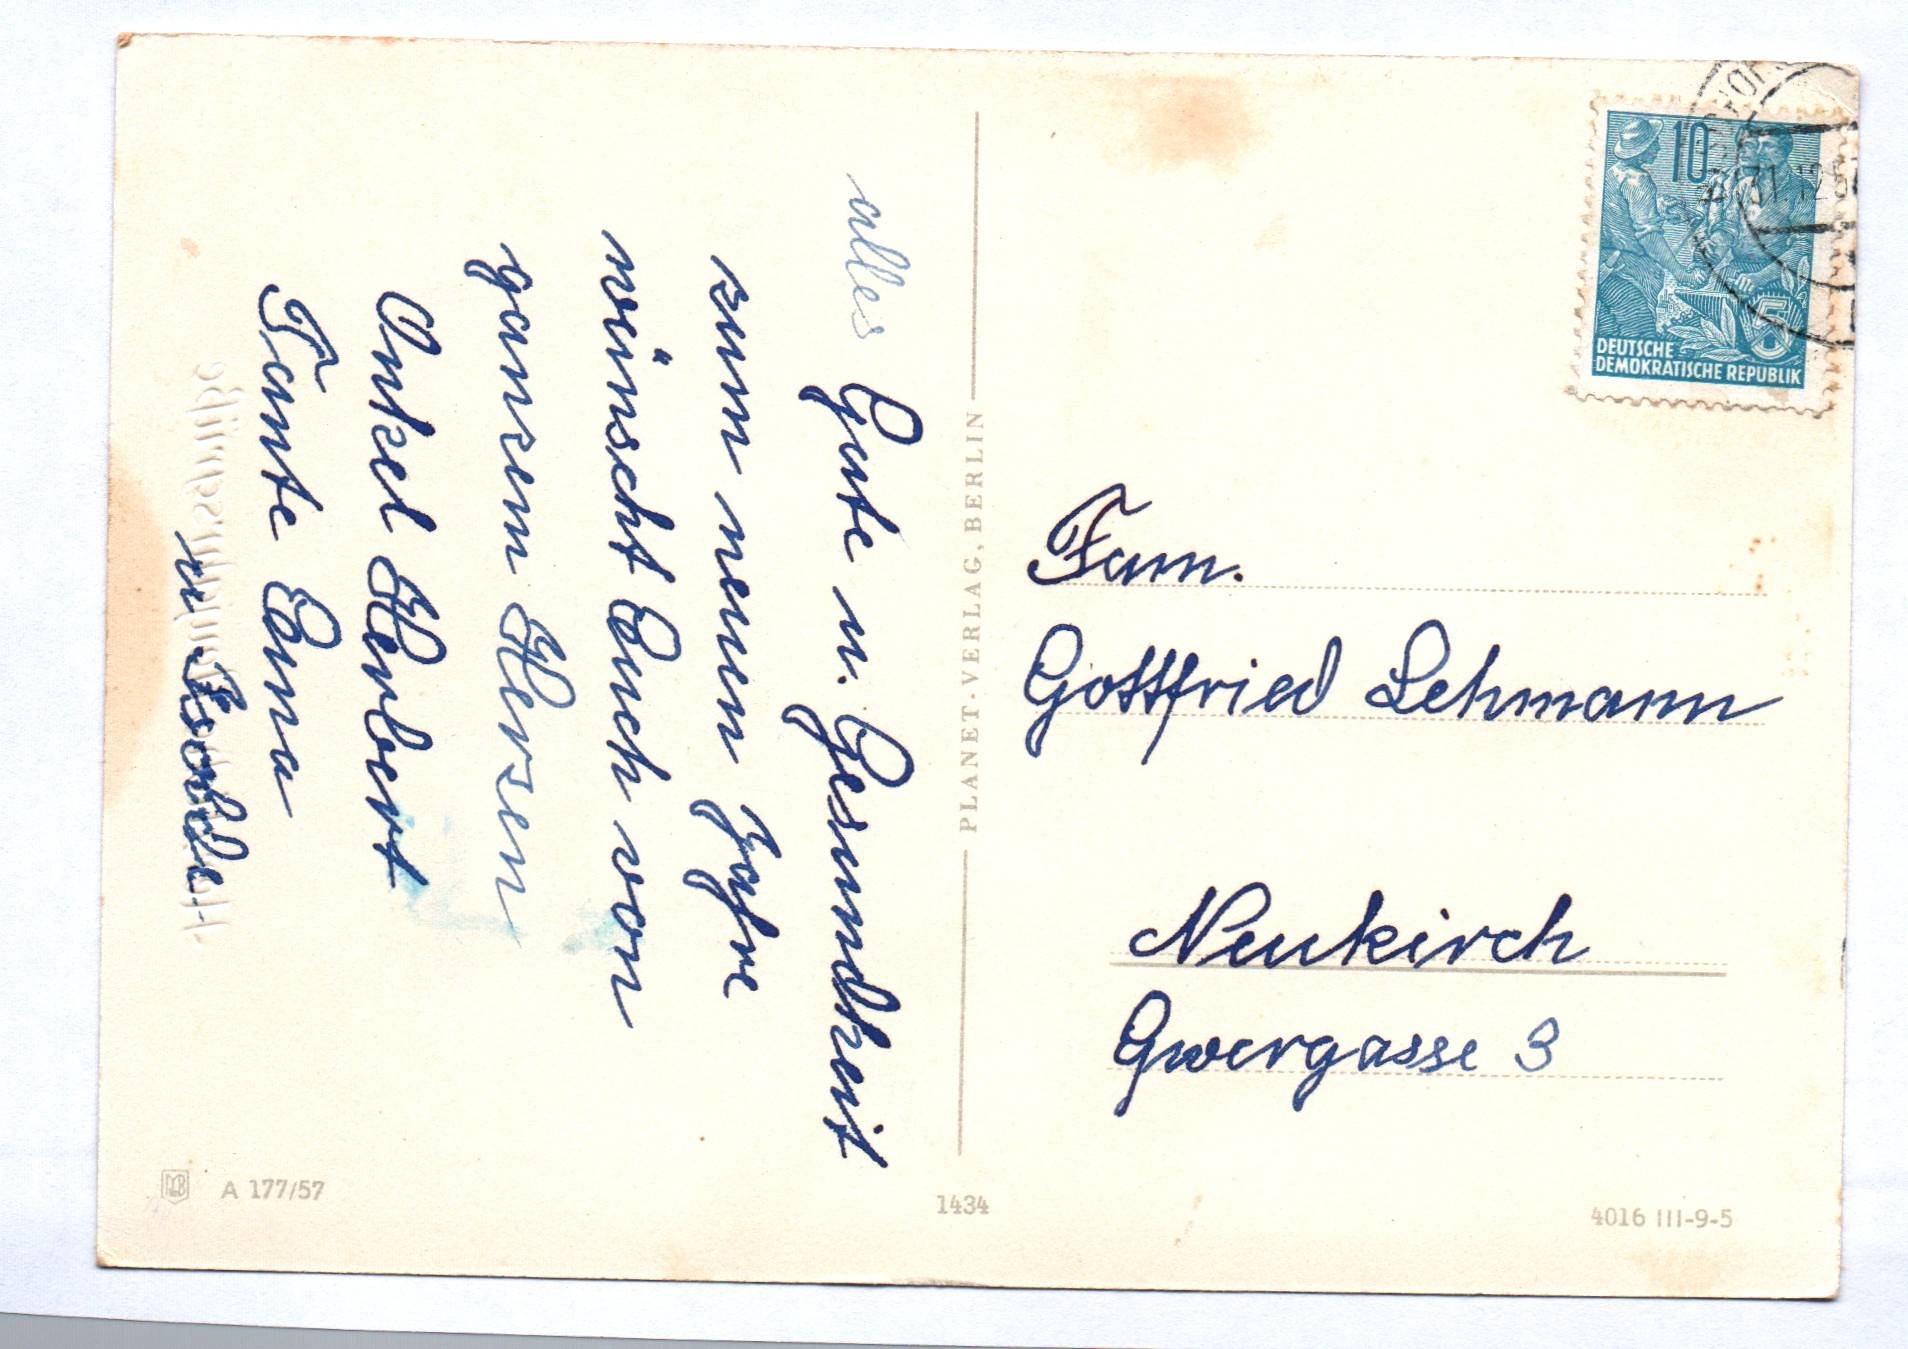 alles Gute u. Gesundheit
zum neuen Jahre
wünscht Euch von
ganzem Herzen
Onkel Herbert
Tante Erna
u. Isolde
PLANET-VERLAG, BERLIN
10
31.12.5
5
DEUTSCHE
DEMOKRATISCHE REPUBLIK
Fam.
Gottfried Lehmann
Neukirch
Quergasse 3
A 177/57
1434
4016 III-9-5